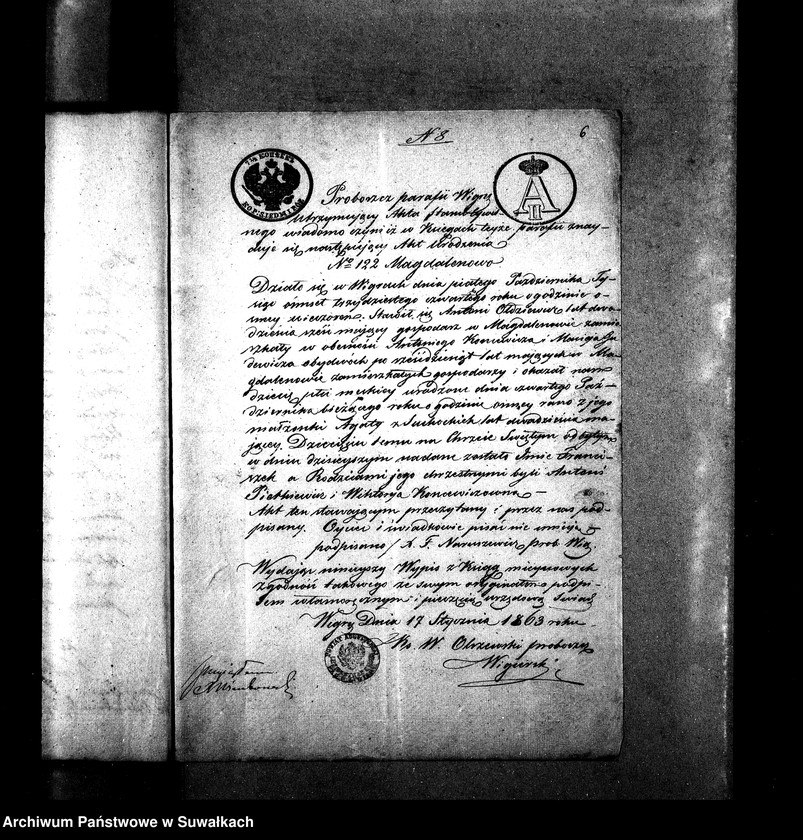 N 8
6
7½ KOPIEJEK
KOP. SIEDM I PÓŁ
A II
Proboszcz parafii Wigry
Utrzymujący Akta Stanu Cywil-
nego wiadomo czyni iż w Księgach tejże parafii znay-
duje się następujący Akt Urodzenia
No 122 Magdalenowo
Działo się w Wigrach dnia piątego Października Ty-
siąc ośmset trzydziestego czwartego roku o godzinie o-
smey wieczorem. Stawił się Antoni Ołdziewicz lat dwa-
dzieścia sześć mający gospodarz w Magdalenowie zamie-
szkały w obecności Antoniego Koncewicza i
dewicza obydwóch po sześćdziesiąt lat mających w Ma-
gdalenowie zamieszkałych gospodarzy i okazał nam
dziecię płci męskiey urodzone dnia czwartego Paź-
dziernika bieżącego roku o godzinie ósmey rano z jego
małżonki Agaty z Suchockich lat dwadzieścia ma-
jącey. Dziecięciu temu na Chrzcie Świętym odbytym
w dniu dzisieyszym nadane zostało Imie Franci-
szek a Rodzicami jego chrzestnymi byli Antoni
Pietkiewicz i Wiktorya Koncewiczowna –
Akt ten stawającym przeczytany i przez nas pod-
pisany. Oyciec i świadkowie pisać nie umieją –
podpisano / X. F. Naruszewicz prob. Wig.
Wydając ninieyszy Wypis z Xiąg mieyscowych
zgodność takowego ze swym oryginałem podpi-
sem własnoręcznym i pieczęcią urzędową świad
Wigry Dnia 17 Stycznia 1863 roku
Ks. W. Olszewski proboszcz
Wigierski
Archiwum Państwowe w Suwałkach